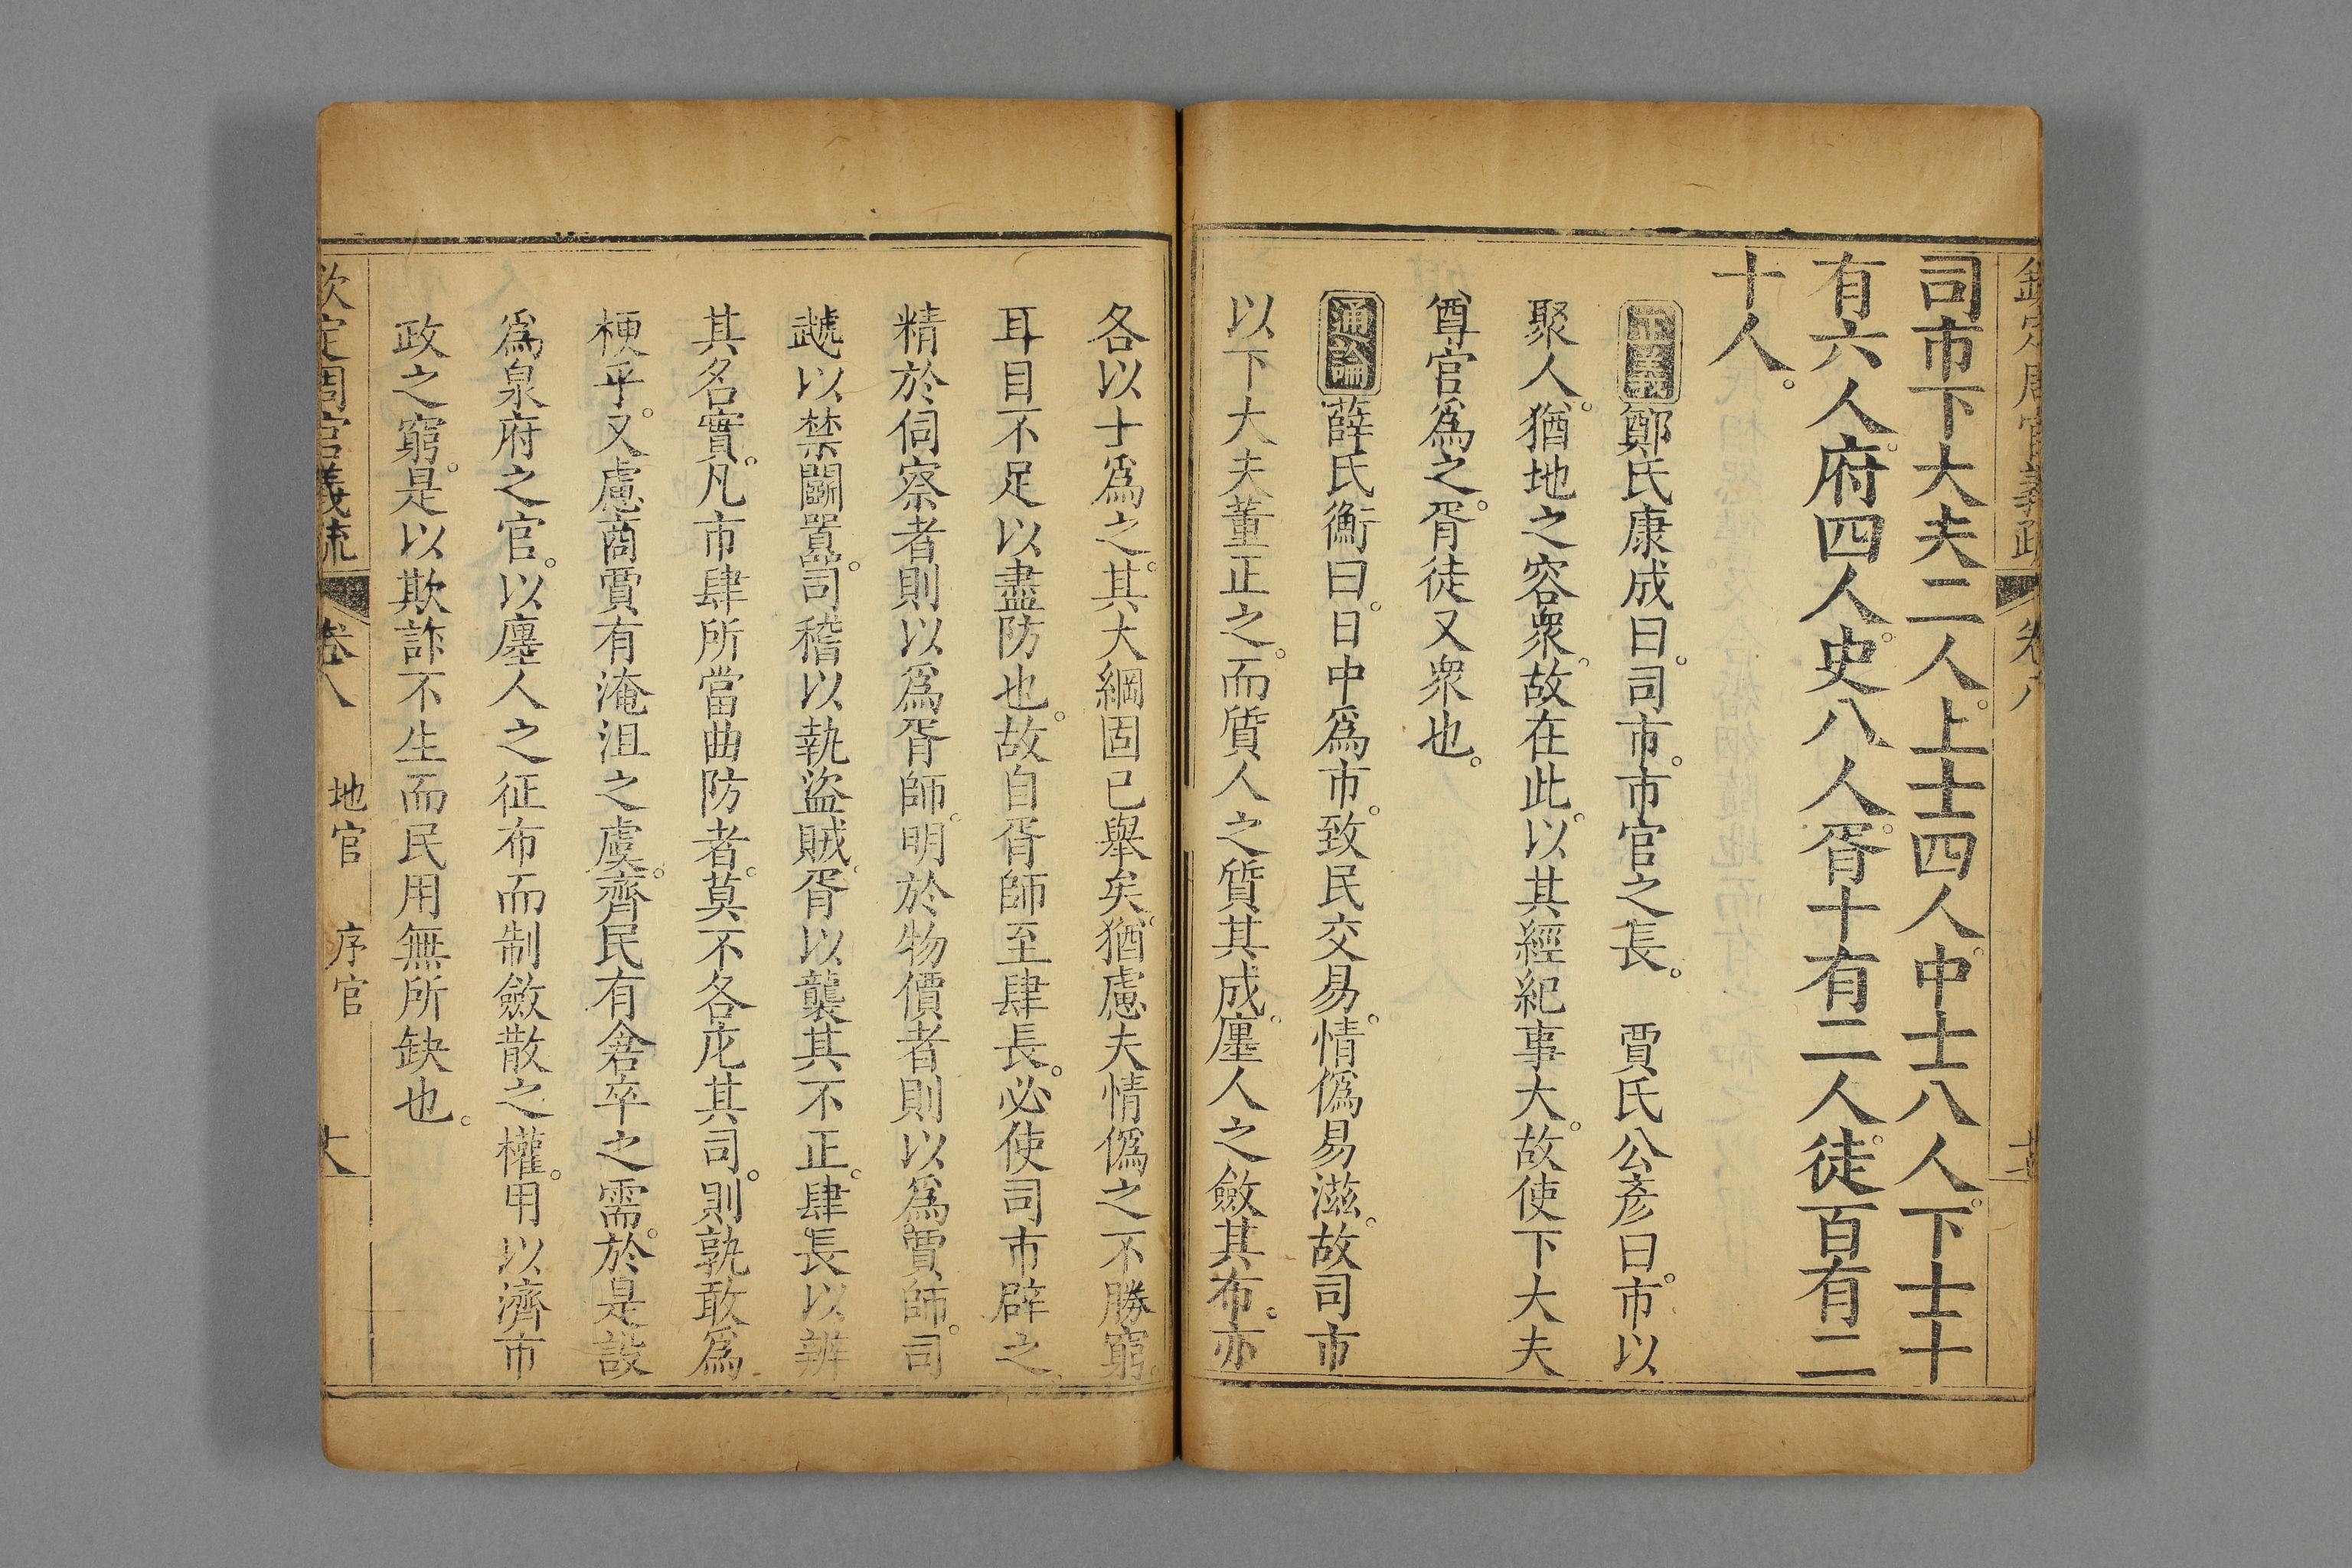 欽定周官義疏 卷八
司市下大夫二人。上士四人。中士八人。下士十
有六人。府四人。史八人。胥十有二人。徒百有二
十人。
正義鄭氏康成曰。司市。市官之長。 賈氏公彥曰。市以
聚人。猶地之容衆。故在此。以其經紀事大。故使下大夫
尊官爲之。胥徒又衆也。
通論薛氏衡曰。日中爲市。致民交易。情僞易滋。故司市
以下大夫董正之。而質人之質其成。廛人之斂其布。亦
各以士爲之。其大綱固已舉矣。猶慮夫情僞之不勝窮。
耳目不足以盡防也。故自胥師至肆長。必使司市辟之。
精於伺察者則以爲胥師。明於物價者則以爲賈師。司
虣以禁鬭嚚。司稽以執盜賊。胥以襲其不正。肆長以辨
其名實。凡市肆所當曲防者。莫不各庀其司。則孰敢爲
梗乎。又慮商賈有淹沮之虞。齊民有倉卒之需。於是設
爲泉府之官。以廛人之征布而制斂散之權。用以濟市
政之窮。是以欺詐不生而民用無所缺也。
欽定周官義疏 卷八 地官 序官